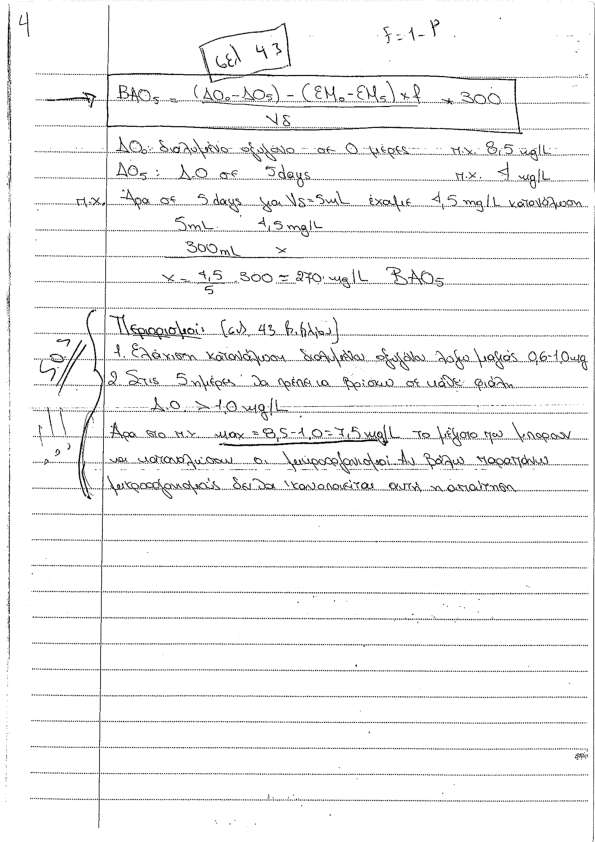 4
f = 1 - P
σελ 43
→ ΒΑΟ₅ = (ΔΟ₀-ΔΟ₅) - (ΕΜ₀-ΕΜ₅) × f / Vδ * 300
ΔΟ₀: διαλυμένο οξυγόνο σε 0 μέρες π.χ. 8,5 mg/L
ΔΟ₅: Δ.Ο σε 5days π.χ. 4 mg/L
π.χ. Άρα σε 5days για Vδ=5mL έχουμε 4,5 mg/L κατανάλωση
5mL 4,5 mg/L
300mL x
x = 4,5/5 · 300 = 270 mg/L ΒΑΟ₅
Περιορισμοί: [σελ. 43 βιβλίου]
1. Ελάχιστη κατανάλωση διαλυμένου οξυγόνου λόγω μαγιάς 0,6-1,0mg
2. Στις 5 ημέρες θα πρέπει να βρίσκω σε κάθε φιάλη
Δ.Ο. > 1,0 mg/L
Άρα στο π.χ. max = 8,5-1,0 = 7,5 mg/L το μέγιστο που μπορούν
να καταναλώσουν οι μικροοργανισμοί. Αν βάλω παραπάνω
μικροοργανισμούς δεν θα ικανοποιείται αυτή η απαίτηση
SOS
!!!